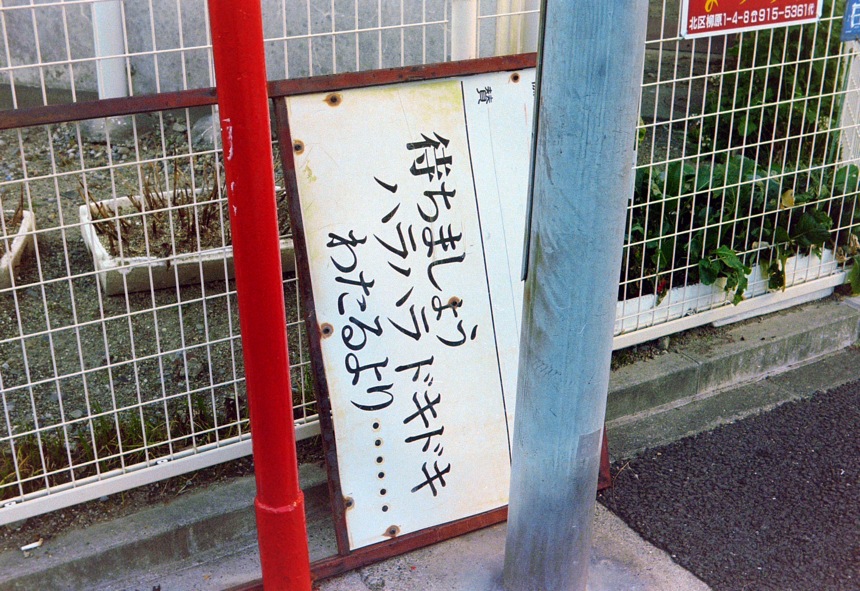 北区柳原1-4-8☎915-5361代
賛
待ちましょう
ハラハラ ドキドキ
わたるより・・・・・・